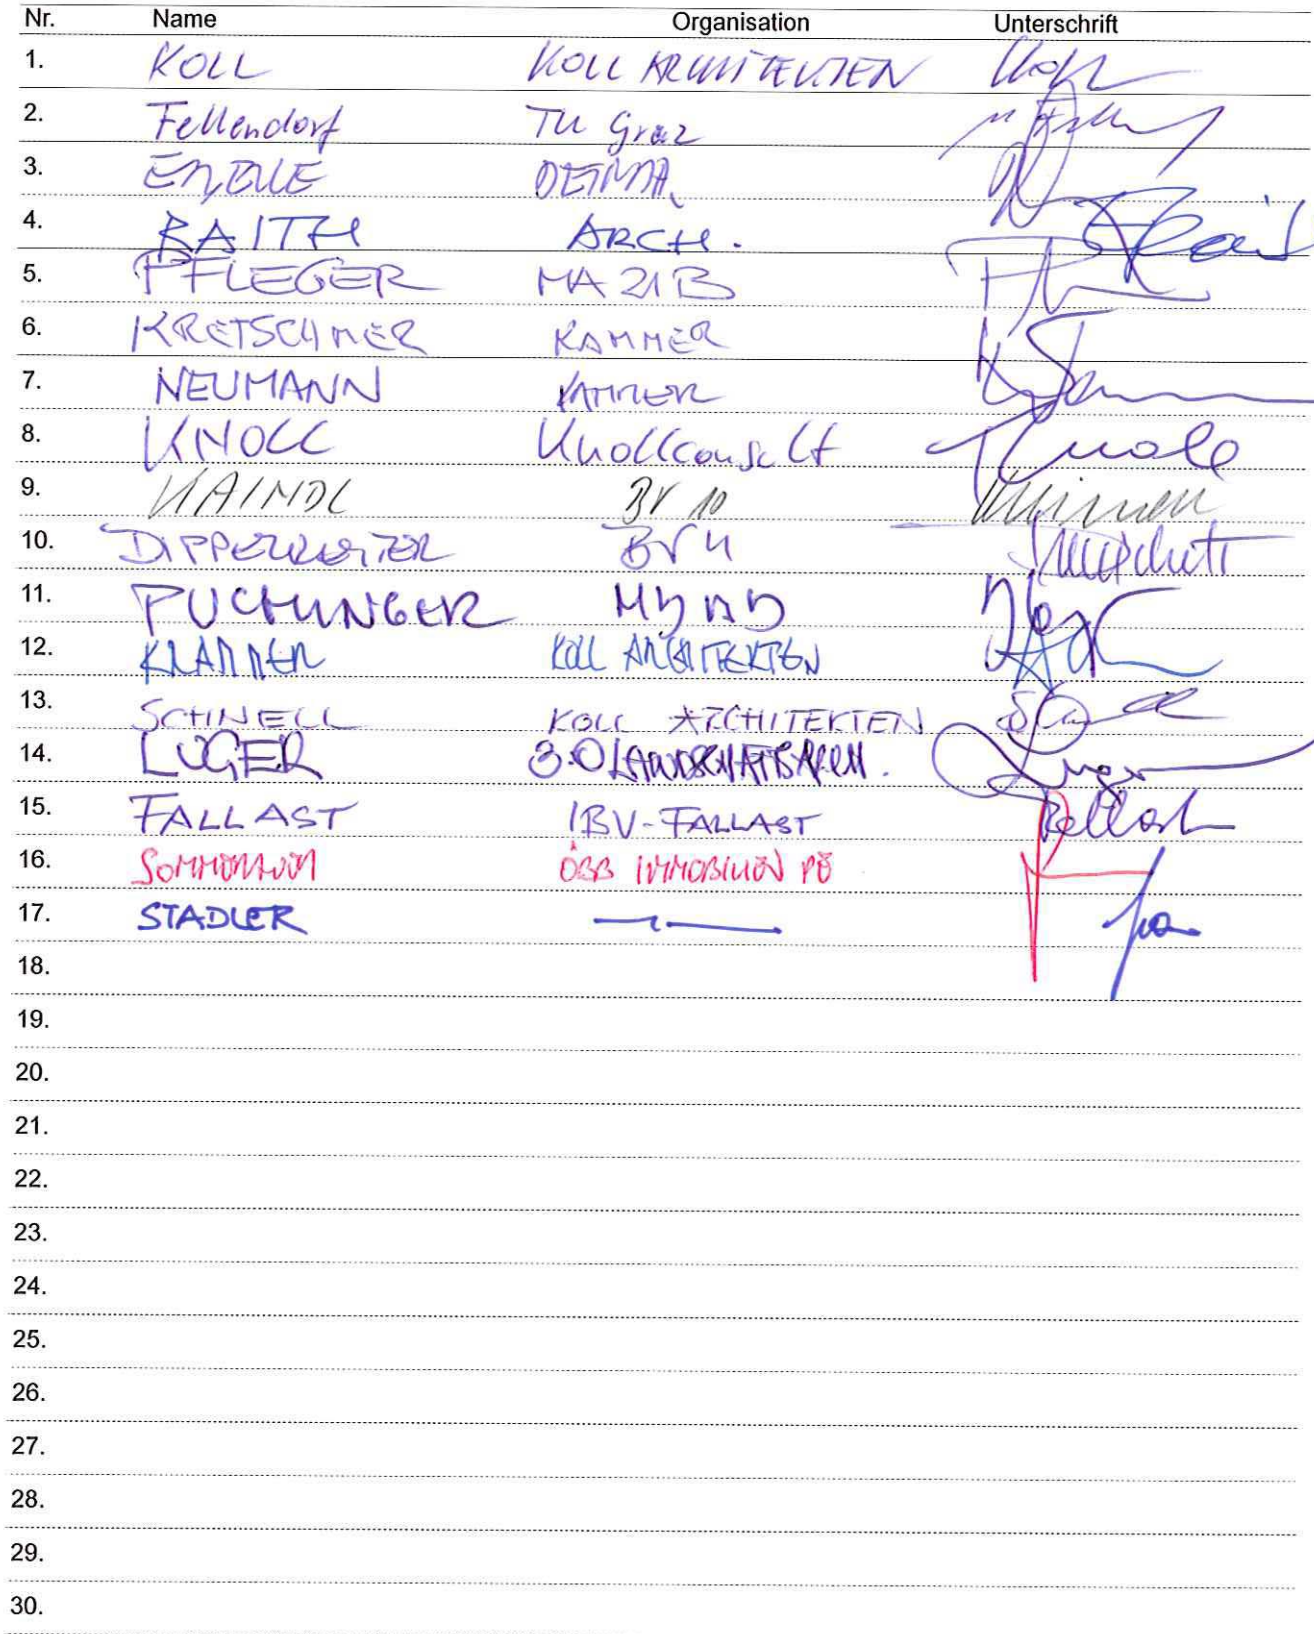 Nr. Name Organisation Unterschrift
1. KOLL KOLL ARCHITEKTEN Koll
2. Fellendorf TU Graz
3.
4. RAITH ARCH. Raith
5. PFLEGER MA 21B
6. KRETSCHMER KAMMER
7. NEUMANN KAMMER
8. KNOLL Knollconsult Knoll
9. KAINDL BV 10
10. DIPPELREITER
11. PUCHINGER
12. KRAMMER KOLL ARCHITEKTEN
13. SCHNELL KOLL ARCHITEKTEN
14. LUGER 3:0 LANDSCHAFTSARCH. Luger
15. FALLAST IBV-FALLAST Fallast
16. ÖBB IMMOBILIEN
17. STADLER
18.
19.
20.
21.
22.
23.
24.
25.
26.
27.
28.
29.
30.